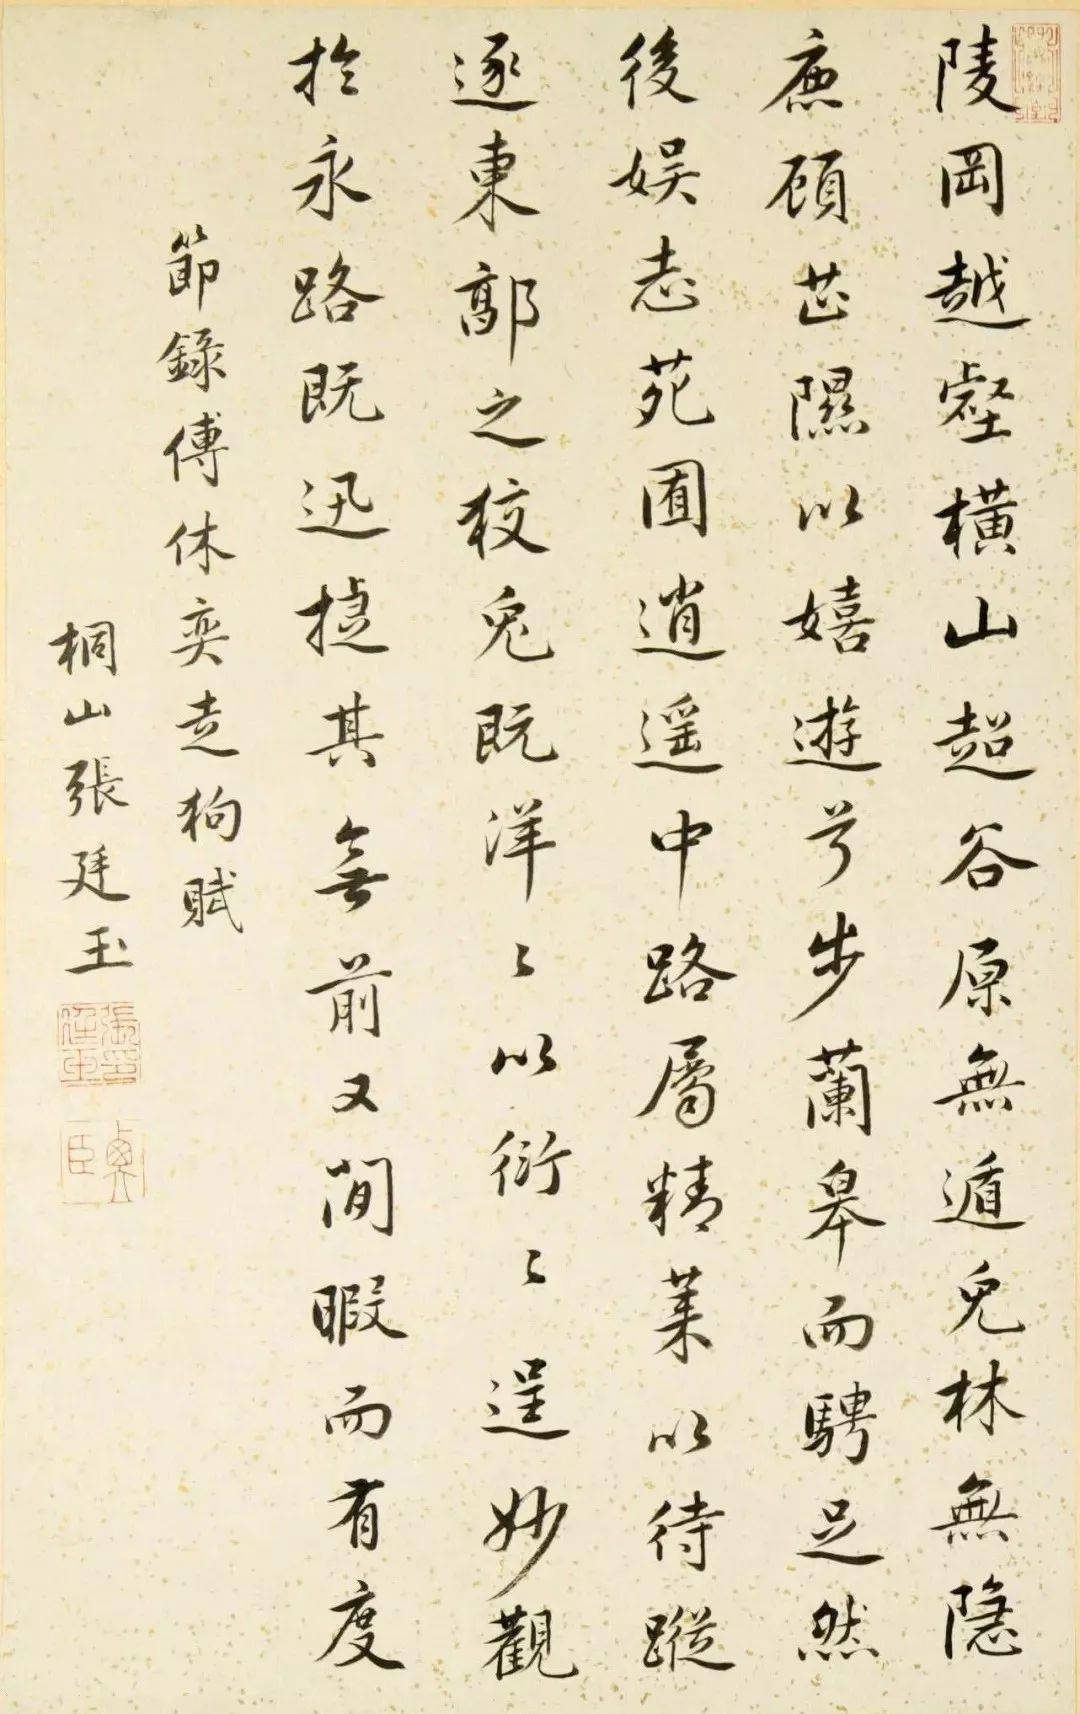 陵岡越壑橫山超谷原無遁兔林無隱
鹿顧芷隰以嬉遊兮步蘭皋而騁足然
後娛志苑囿逍遙中路屬精萊以待蹤
逐東郭之狡兔既洋〻以衍〻逞妙觀
於永路既迅捷其無前又閒暇而有度
節錄傅休奕走狗賦
桐山張廷玉
張廷玉印
衡臣